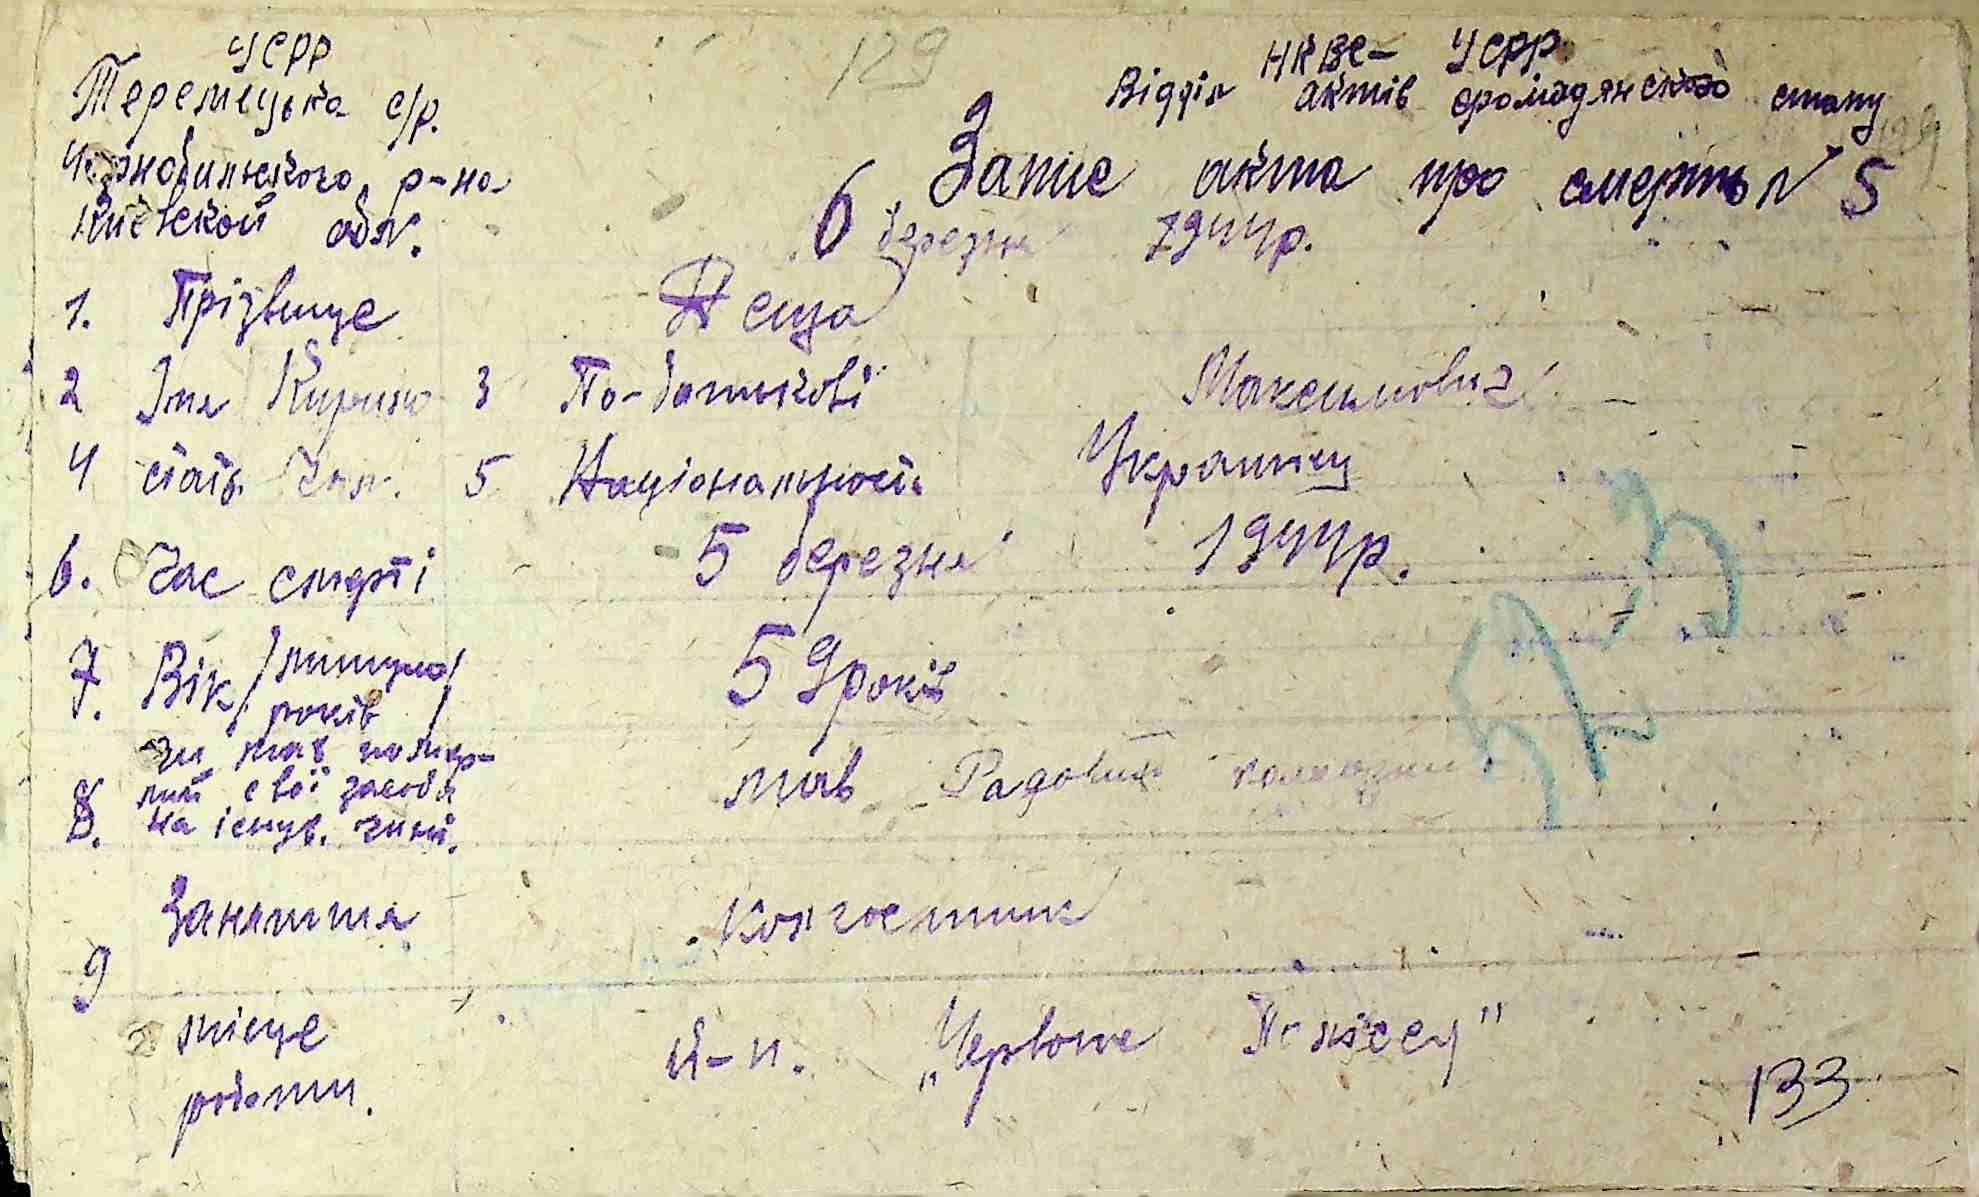 129
УСРР
Теремецька с/р.
Чорнобильского р-на
Киевской обл.
НКВС- УСРР
Відділ актів громадянського стану
Запис акта про смерть № 5
6 березня 1944р.
1. Прізвище Деща
2 Імя Кирило 3 По-батькові Максимович
4 стать чол. 5 Національность Украинец
6. Час смерті 5 березня 1944р.
7. Вік /минуло/ років 59 років
8. чи мав померлий свої засоби на існув. чини. мав Радовий колхозник
9 Заняття Колгоспник
місце роботи. к-п. „Червоне Полісся"
133